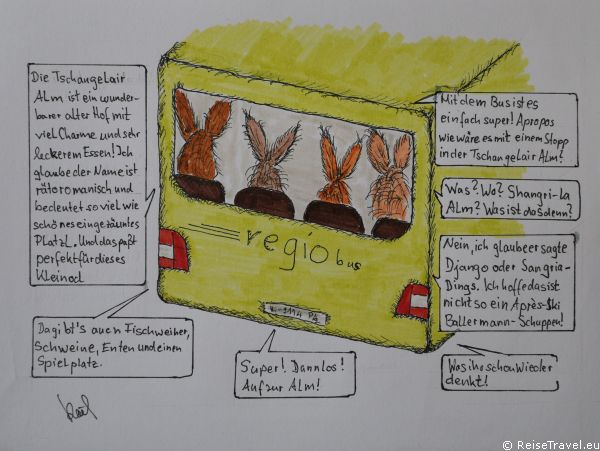 Mit dem Bus ist es
einfach super! Apropos
wie wäre es mit einem Stopp
in der Tschangelair Alm?
Was? Wo? Shangri-La
Alm? Was ist das denn?
Nein, ich glaube er sagte
Django oder Sangria-
Dings. Ich hoffe das ist
nicht so ein Après-Ski
Ballermann-Schuppen!
Was ihr schon wieder
denkt!
Die Tschangelair
Alm ist ein wunder-
barer alter Hof mit
viel Charme und sehr
leckerem Essen! Ich
glaube der Name ist
rätoromanisch und
bedeutet so viel wie
schönes eingezäuntes
Platzl. Und das paßt
perfekt für dieses
Kleinod
Da gibt's auch Fischweiher,
Schweine, Enten und einen
Spielplatz.
Super! Dann los!
Auf zur Alm!
regio bus
© ReiseTravel.eu